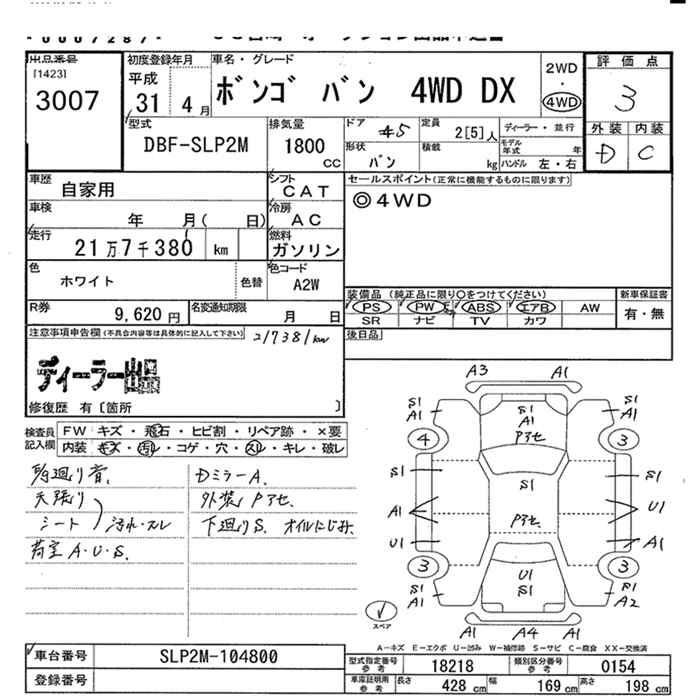 出品番号
[1423]
3007
初度登録年月
平成
31 4月
車名・グレード
ボンゴ バン 4WD DX
2WD
・
4WD
評価点
3
外装 内装
D C
型式
DBF-SLP2M
排気量
1800
CC
ドア 45
定員 2[5]人
ディーラー・並行
形状 バン
積載 kg
モデル年式 年
ハンドル 左・右
車歴 自家用
シフト CAT
セールスポイント(正常に機能するものに限ります)
◎4WD
車検 年 月( 日)
冷房 AC
走行 21万7千380 km
燃料 ガソリン
色 ホワイト 色替
色コード A2W
装備品(純正品に限り○をつけてください)
新車保証書
PS PW ABS エアB AW
有・無
SR ナビ TV カワ
R券 9,620円
名変通知期限 月 日
後日品
注意事項申告欄(不具合内容等は具体的に記入して下さい)
217381km
ディーラー出品
修復歴 有〔箇所 〕
検査員記入欄
FW キズ・飛石・ヒビ割・リペア跡・×要
内装 キズ・汚レ・コゲ・穴・スレ・キレ・破レ
天張り
シート
汚れ・スレ
荷室A・U・S.
DミラーA.
外装Pアセ.
下廻りS. オイルにじみ.
A3 A1
S1 A1
S1 A1
S1 A1 Pアセ
4 3
S1 S1 S1
A1 Pアセ U1
U1 A1
3 3
U1 S1
S1 A1
S1 A2
A1 A4 A1
スペア
A-キズ E-エクボ U-凹み W-補修跡 S-サビ C-腐食 XX-交換済
車台番号 SLP2M-104800
登録番号
型式指定番号 参考 18218
類別区分番号 参考 0154
車庫証明用 参考 長さ 428cm 幅 169cm 高さ 198cm